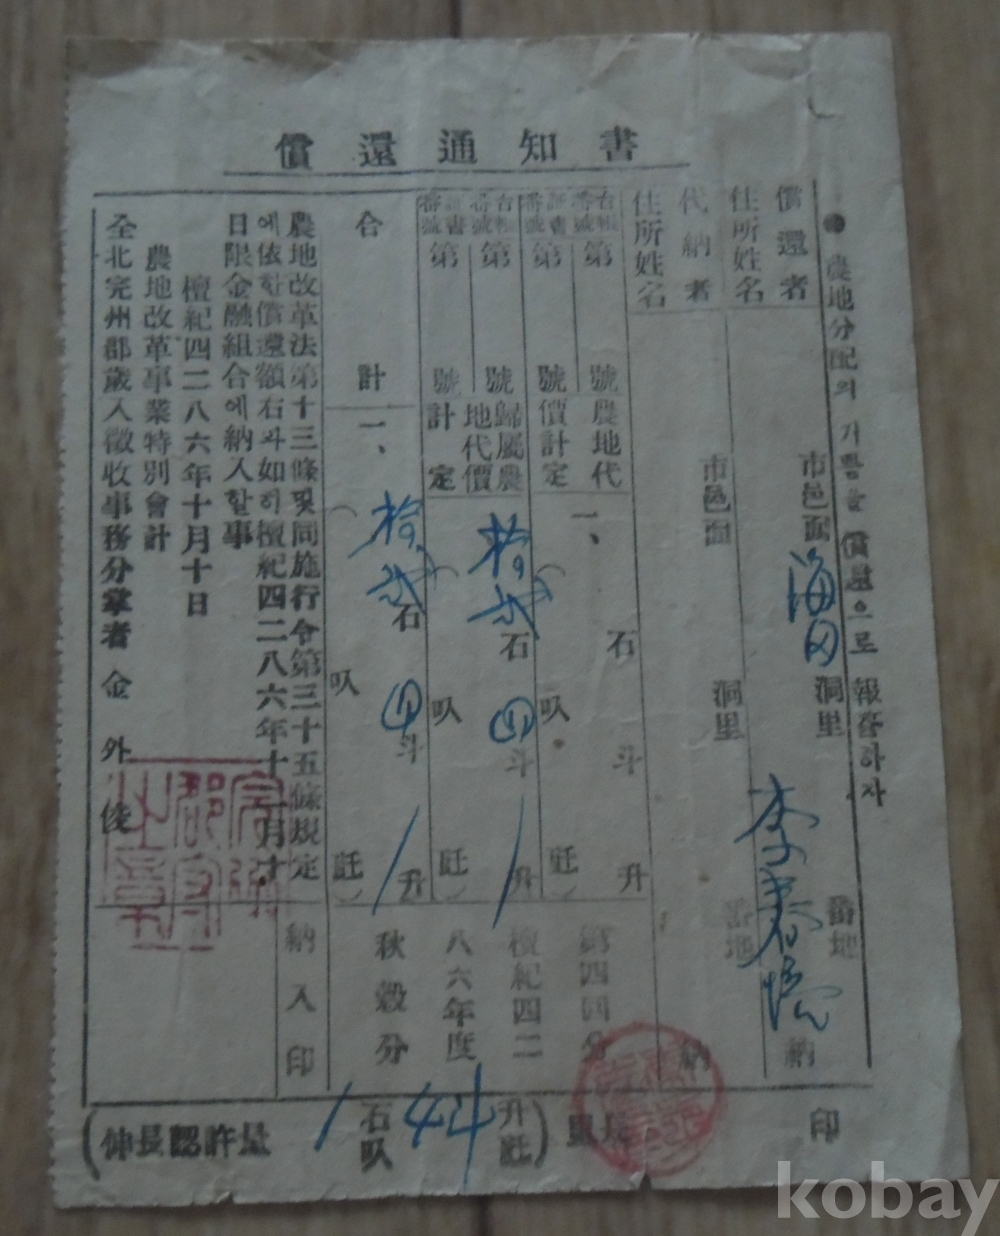 償還通知書
●農地分配의 기쁨을 償還으로 報答하자
償還者
住所姓名
市邑面
海田
洞里
番地
李春
納
代納者
住所姓名
市邑面
洞里
番地
納
台帳番號 第 號
證書番號 第 號
農地代價計定
一、
石 斗 升
叺 瓩)
台帳番號 第 號
證書番號 第 號
歸屬農地代價計定
拾貳石四斗1升
(叺 瓩)
合計
一、
拾貳石四斗1升
(叺 瓩)
第四回分
檀紀四二八六年度
秋穀分
農地改革法第十三條및同施行令第三十五條規定
에依한償還額右와如히檀紀四二八六年十一月十
日限金融組合에納入할事
檀紀四二八六年十月十日
農地改革事業特別會計
全北完州郡歲入徵收事務分掌者 金外俊
納入印
(伸長認許量 1石叺 44 升瓩) 里長 印
kobay